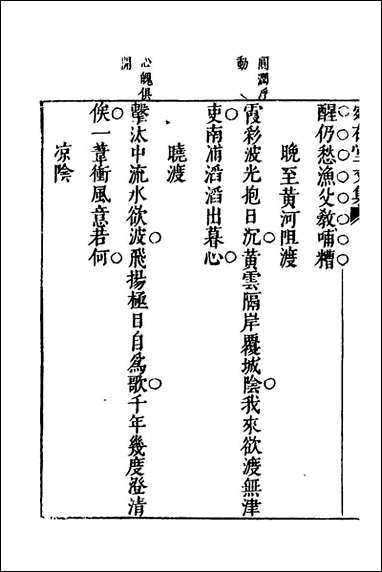 醒仍愁漁父教哺糟
晚至黃河阻渡
霞彩波光抱日沉黃雲隔岸覆城陰我來欲渡無津
吏南浦滔滔出暮心
曉渡
擊汰中流水欲波飛揚極目自爲歌千年幾度澄清
俟一葦衝風意若何
凉陰
動
心魄俱
開